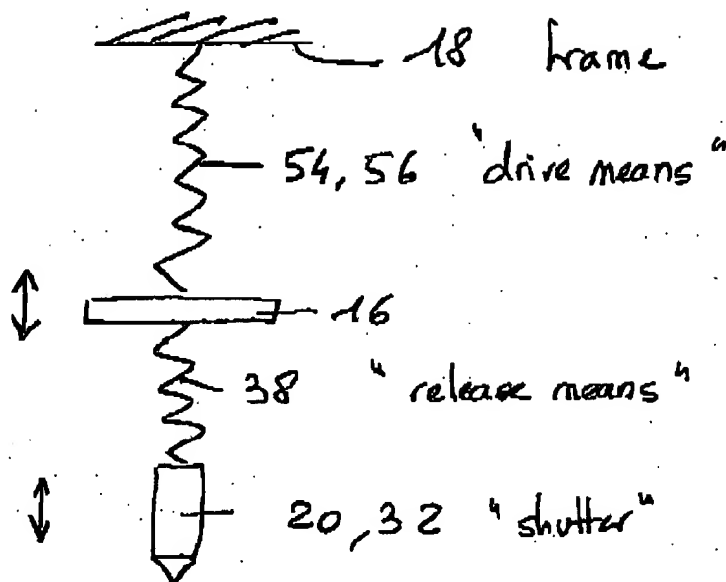 18 frame
54, 56 "drive means"
16
38 "release means"
20, 32 "shutter"